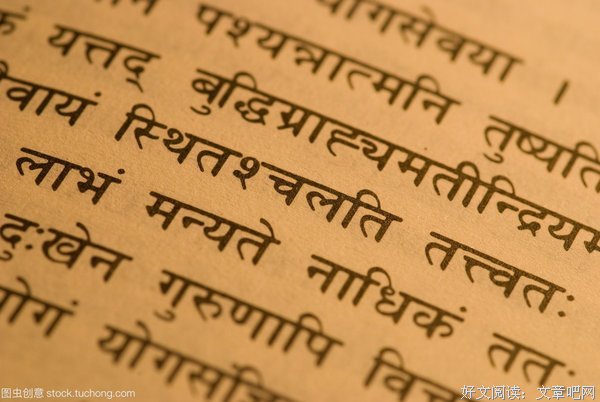 योगसेवया ।
पश्यन्नात्मनि तुष्यति
यत्तद् बुद्धिग्राह्यमतीन्द्रियम
वायं स्थितश्चलति तत्त्वतः
लाभं मन्यते नाधिकं ततः
दुःखेन गुरुणापि
योगं
图虫创意 stock.tuchong.com
好文阅读：文章吧网